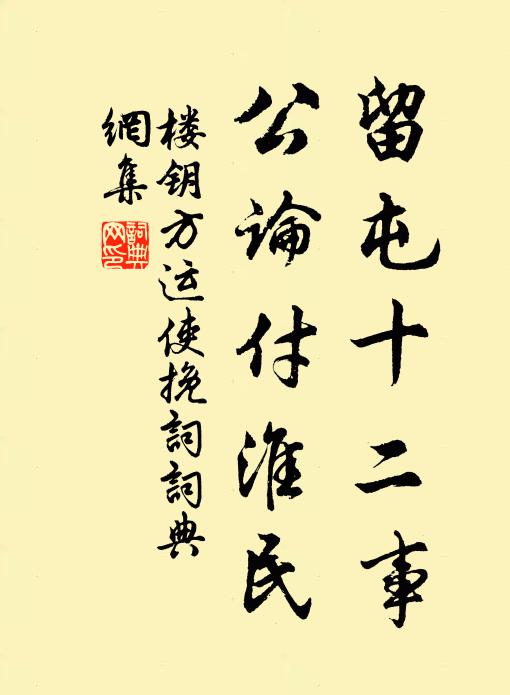 留屯十二事
公論付淮民
楼钥方运使挽詞詞典
網集
詞典網印